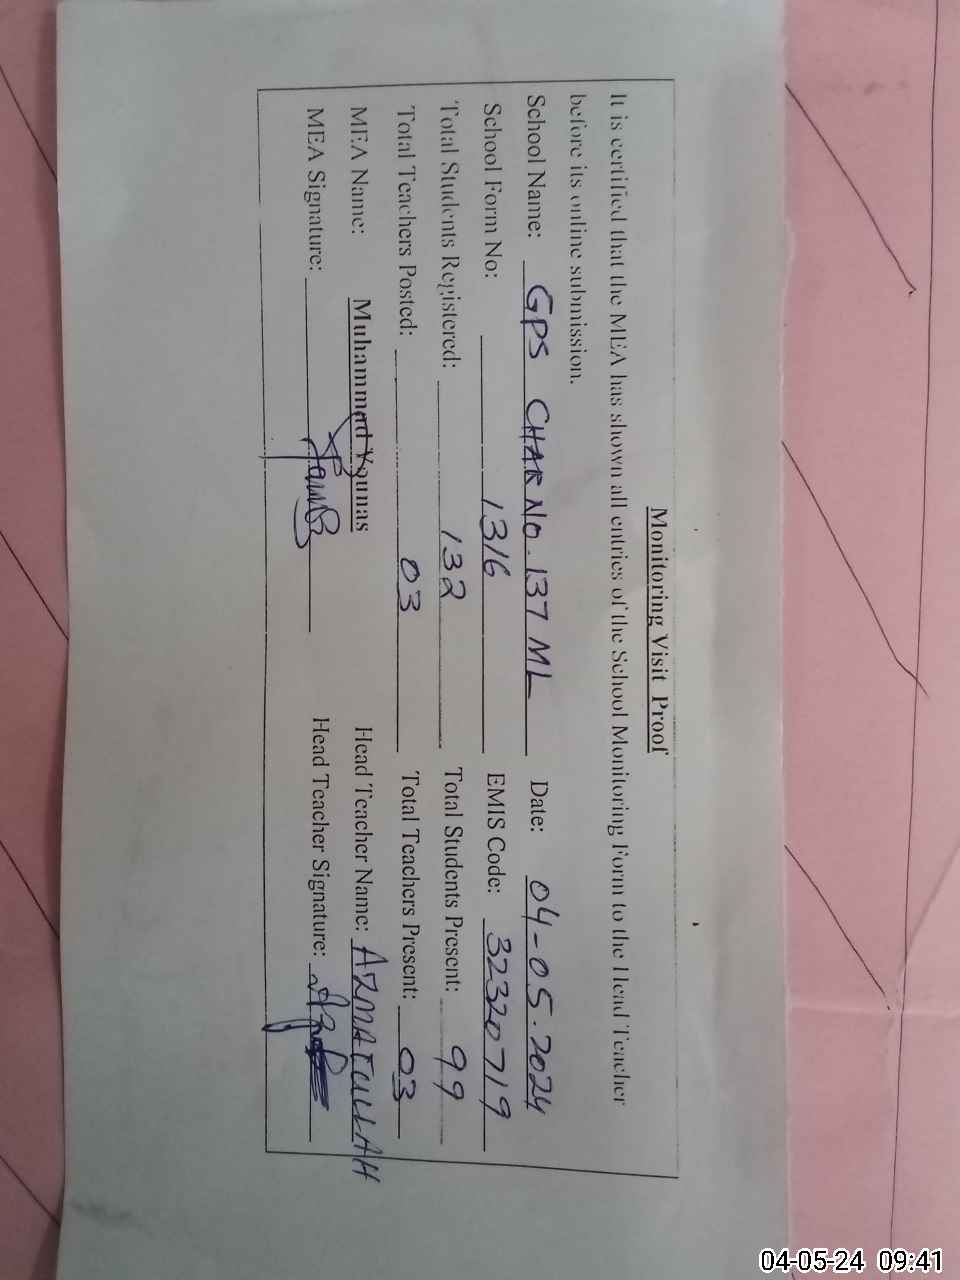 Monitoring Visit Proof
It is certified that the MEA has shown all entries of the School Monitoring Form to the Head Teacher
before its online submission.
School Name: GPS CHAR NO. 137 ML Date: 04-05.2024
School Form No: 1316 EMIS Code: 32320719
Total Students Registered: 132 Total Students Present: 99
Total Teachers Posted: 03 Total Teachers Present: 03
MEA Name: Muhammad Younas Head Teacher Name: AZMATULLAH
MEA Signature: Head Teacher Signature:
04-05-24 09:41